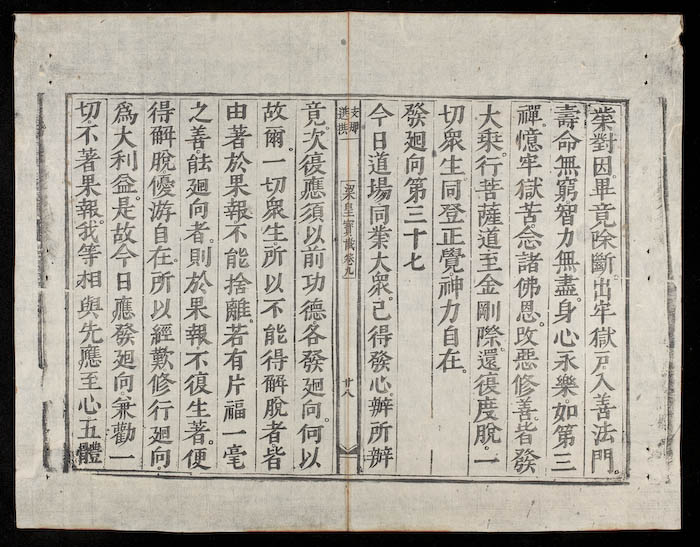 業對因畢竟除斷。出牢獄戶。入善法門。
壽命無窮。智力無盡。身心永樂。如第三
禪。憶牢獄苦。念諸佛恩。改惡修善。皆發
大乘。行菩薩道。至金剛際。還復度脫。一
切眾生。同登正覺。神力自在。
發廻向第三十七
今日道場同業大眾。已得發心。辦所辦
梁皇寶懺卷九
廿八
竟。次復應須以前功德各發廻向。何以
故爾。一切眾生所以不能得解脫者。皆
由著於果報。不能捨離。若有片福一毫
之善。能廻向者。則於果報不復生著。便
得解脫。優游自在。所以經歎修行廻向
為大利益。是故今日應發廻向。兼勸一
切。不著果報。我等相與先應至心五體